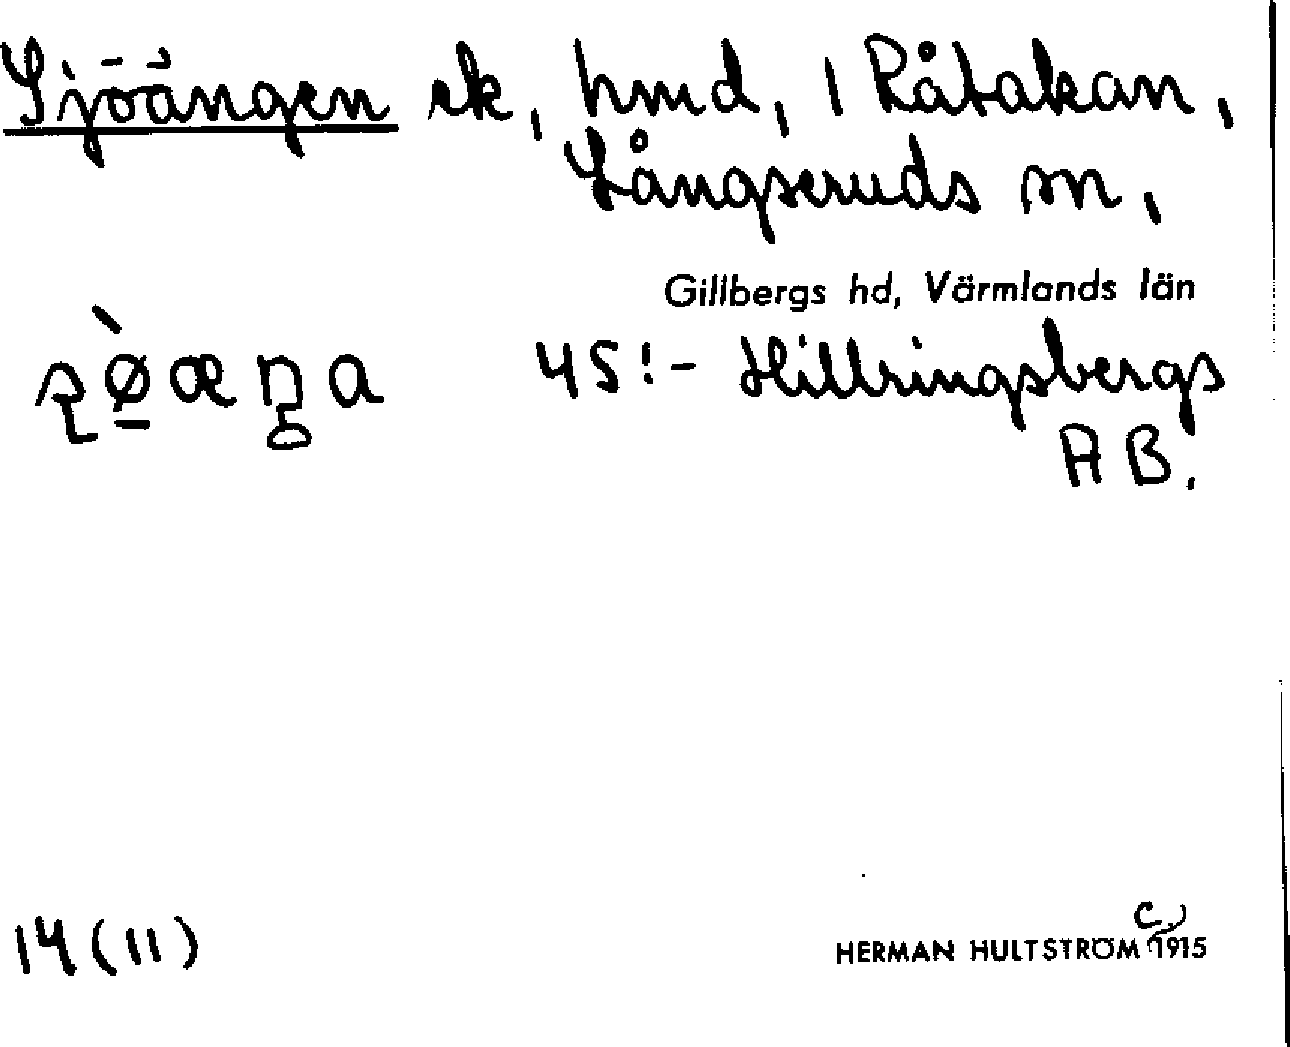 Sjöängen sk, hmd, i Råtakan,
Långseruds sn,
Gillbergs hd, Värmlands län
45:- Hillringsbergs
AB.
14(11)
HERMAN HULTSTRÖM C. 1915